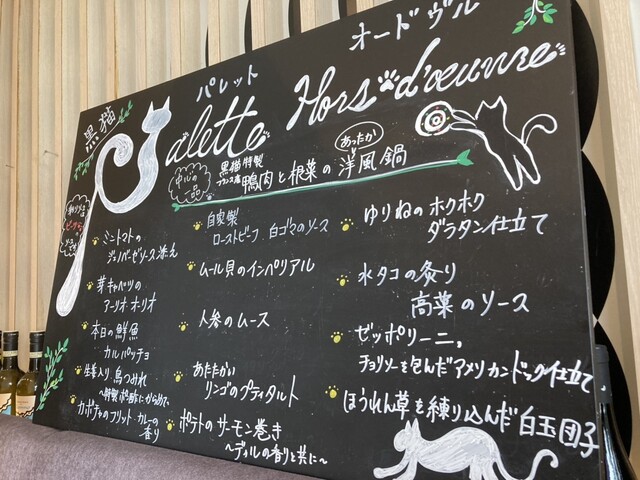 黒猫
パレット
オードヴル
Palette Hors d'œuvre
中心の
一品
黒猫特製
フランス産
鴨肉と根菜の
あったか
洋風鍋
ミニトマトの
ジェノバーゼソース添え
芽キャベツの
アーリオ・オーリオ
本日の鮮魚
カルパッチョ
生姜入り鳥つみれ
〜特製ポン酢にからめて〜
カボチャのフリット カレーの
香り
自家製
ローストビーフ 白ゴマのソース
ムール貝のインペリアル
人参のムース
あたたかい
リンゴのプティタルト
ポテトのサーモン巻き
〜ディルの香りと共に〜
ゆりねのホクホク
グラタン仕立て
水タコの炙り
高菜のソース
ゼッポリーニ。
チョリソーを包んだアメリカンドック仕立て
ほうれん草を練り込んだ白玉団子